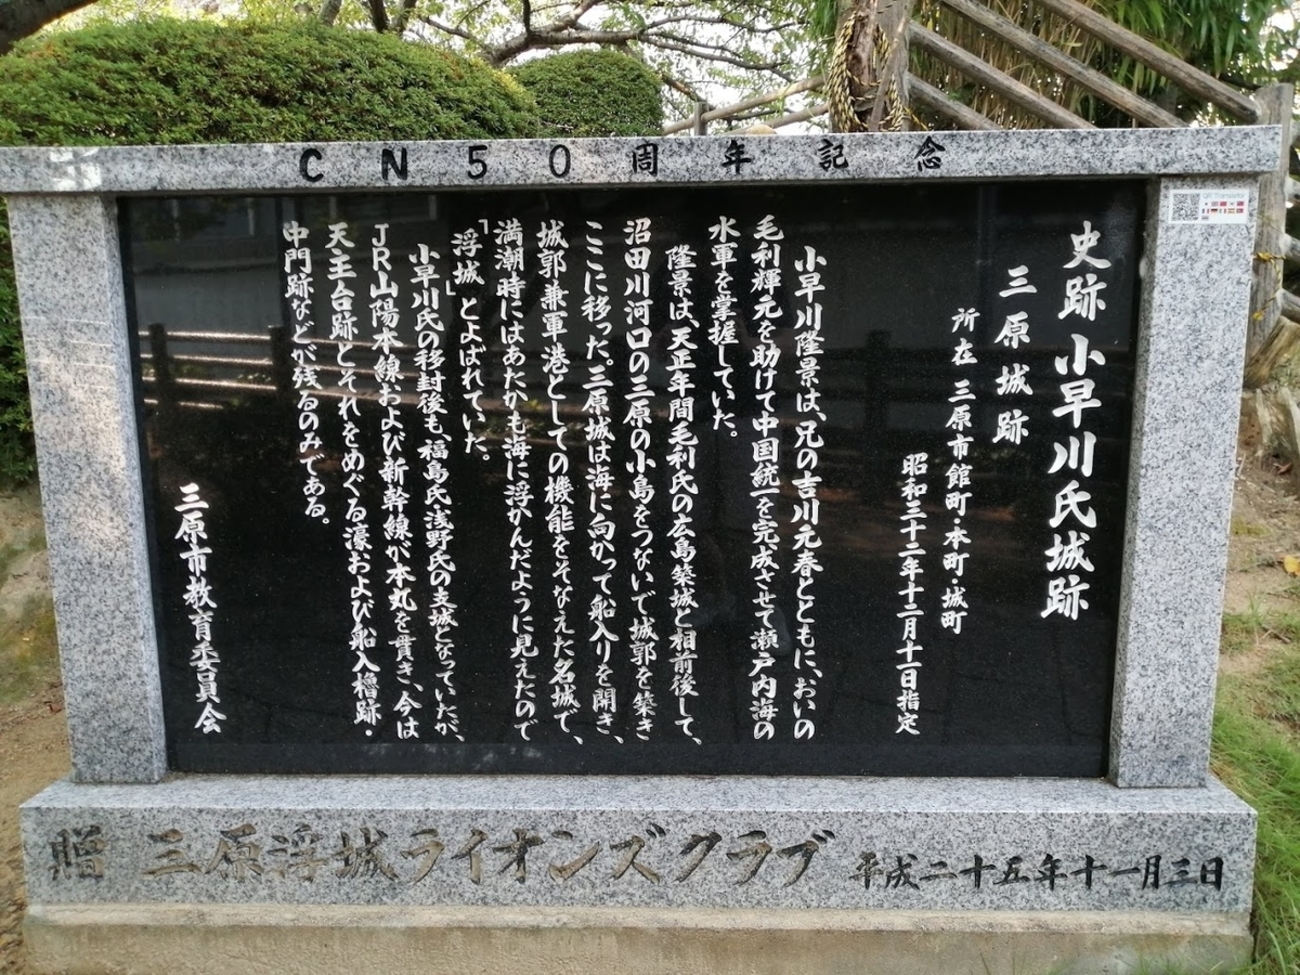 CN50周年記念
史跡 小早川氏城跡
三原城跡
所在 三原市館町・本町・城町
昭和三十二年十二月十一日指定
小早川隆景は、兄の吉川元春とともに、おいの
毛利輝元を助けて中国統一を完成させて瀬戸内海の
水軍を掌握していた。
隆景は、天正年間毛利氏の広島築城と相前後して、
沼田川河口の三原の小島をつないで城郭を築き
ここに移った。三原城は海に向かって船入りを開き、
城郭兼軍港としての機能をそなえた名城で、
満潮時にはあたかも海に浮かんだように見えたので
「浮城」とよばれていた。
小早川氏の移封後も、福島氏、浅野氏の支城となっていたが、
JR山陽本線および新幹線が本丸を貫き、今は
天主台跡とそれをめぐる濠、および船入櫓跡・
中門跡などが残るのみである。
三原市教育委員会
贈 三原浮城ライオンズクラブ 平成二十五年十一月三日